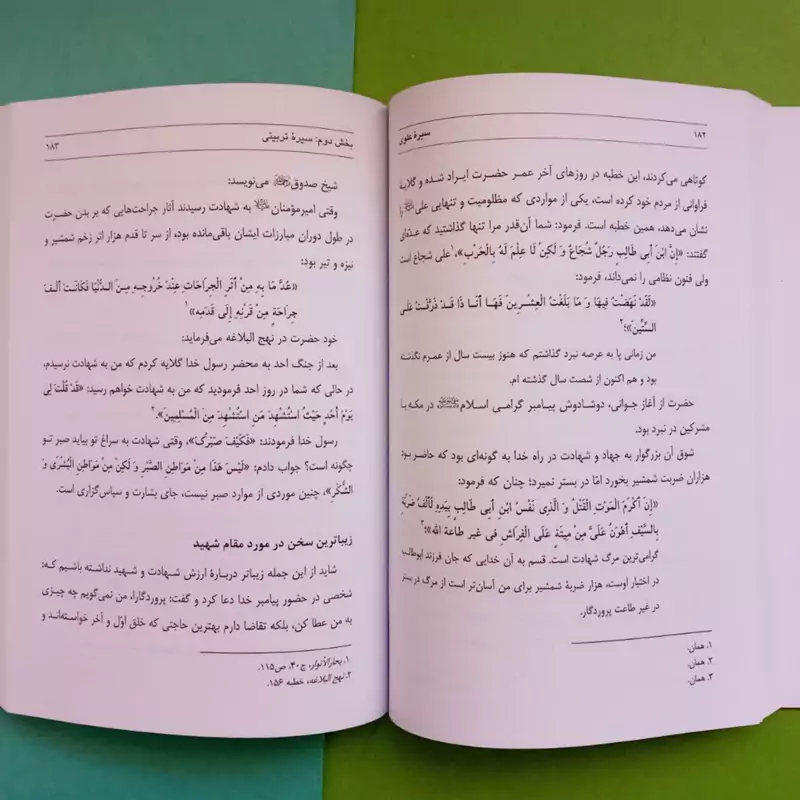 ۱۸۲ سیرهٔ علوی
کوتاهی می‌کردند، این خطبه در روزهای آخر عمر حضرت ایراد شده و گلایهٔ
فراوانی از مردم خود کرده است، یکی از مواردی که مظلومیت و تنهایی علی را
نشان می‌دهد، همین خطبه است. فرمود: شما آن‌قدر مرا تنها گذاشتید که عده‌ای
گفتند: «إِنَّ ابْنَ أَبِي طَالِبٍ رَجُلٌ شُجَاعٌ وَ لَكِنْ لَا عِلْمَ لَهُ بِالْحَرْبِ»،۱ علی شجاع است
ولی فنون نظامی را نمی‌داند، فرمود:
«لَقَدْ نَهَضْتُ فِيهَا وَ مَا بَلَغْتُ الْعِشْرِينَ فَهَا أَنَا ذَا قَدْ ذَرَّفْتُ عَلَى
السِّتِّينَ»؛۲
من زمانی پا به عرصه نبرد گذاشتم که هنوز بیست سال از عمرم نگذشته
بود و هم اکنون از شصت سال گذشته ام.
حضرت از آغاز جوانی، دوشادوش پیامبر گرامی اسلام ﷺ در مکه با
مشرکین در نبرد بود.
شوق آن بزرگوار به جهاد و شهادت در راه خدا به گونه‌ای بود که حاضر بود
هزاران ضربت شمشیر بخورد امّا در بستر نمیرد؛ چنان که فرمود:
«إِنَّ أَكْرَمَ الْمَوْتِ الْقَتْلُ وَ الَّذِي نَفْسُ ابْنِ أَبِي طَالِبٍ بِيَدِهِ لَأَلْفُ ضَرْبَةٍ
بِالسَّيْفِ أَهْوَنُ عَلَيَّ مِنْ مِيتَةٍ عَلَى الْفِرَاشِ فِي غير طاعة الله»؛۳
گرامی‌ترین مرگ شهادت است. قسم به آن خدایی که جان فرزند ابوطالب
در اختیار اوست، هزار ضربهٔ شمشیر برای من آسان‌تر است از مرگ در بستر
در غیر طاعت پروردگار.
۱. همان.
۲. همان.
۳. همان.
بخش دوم: سیرهٔ تربیتی ۱۸۳
شیخ صدوق می‌نویسد:
وقتی امیرمؤمنان به شهادت رسیدند آثار جراحت‌هایی که بر بدن حضرت
در طول دوران مبارزات ایشان باقی‌مانده بود، از سر تا قدم هزار اثر زخم شمشیر و
نیزه و تیر بود:
«عُدَّ مَا بِهِ مِنْ أَثَرِ الْجِرَاحَاتِ عِنْدَ خُرُوجِهِ مِنَ الدُّنْيَا فَكَانَتْ أَلْفَ
جِرَاحَةٍ مِنْ قَرْنِهِ إِلَى قَدَمِهِ»۱
خود حضرت در نهج البلاغه می‌فرماید:
بعد از جنگ احد به محضر رسول خدا گلایه کردم که من به شهادت نرسیدم،
در حالی که شما در روز احد فرمودید که من به شهادت خواهم رسید: «قَدْ قُلْتَ لِي
يَوْمَ أُحُدٍ حَيْثُ اسْتُشْهِدَ مَنِ اسْتُشْهِدَ مِنَ الْمُسْلِمِينَ».۲
رسول خدا فرمودند: «فَكَيْفَ صَبْرُكَ»، وقتی شهادت به سراغ تو بیاید صبر تو
چگونه است؟ جواب دادم: «لَيْسَ هَذَا مِنْ مَوَاطِنِ الصَّبْرِ وَ لَكِنْ مِنْ مَوَاطِنِ الْبُشْرَى وَ
الشُّكْرِ»، چنین موردی از موارد صبر نیست، جای بشارت و سپاس‌گزاری است.
زیباترین سخن در مورد مقام شهید
شاید از این جمله زیباتر دربارهٔ ارزش شهادت و شهید نداشته باشیم که:
شخصی در حضور پیامبر خدا دعا کرد و گفت: پروردگارا، من نمی‌گویم چه چیزی
به من عطا کن، بلکه تقاضا دارم بهترین حاجتی که خلق اوّل و آخر خواسته‌اند و
۱. بحارالأنوار، ج۴۰، ص۱۱۵.
۲. نهج البلاغه، خطبه ۱۵۶.